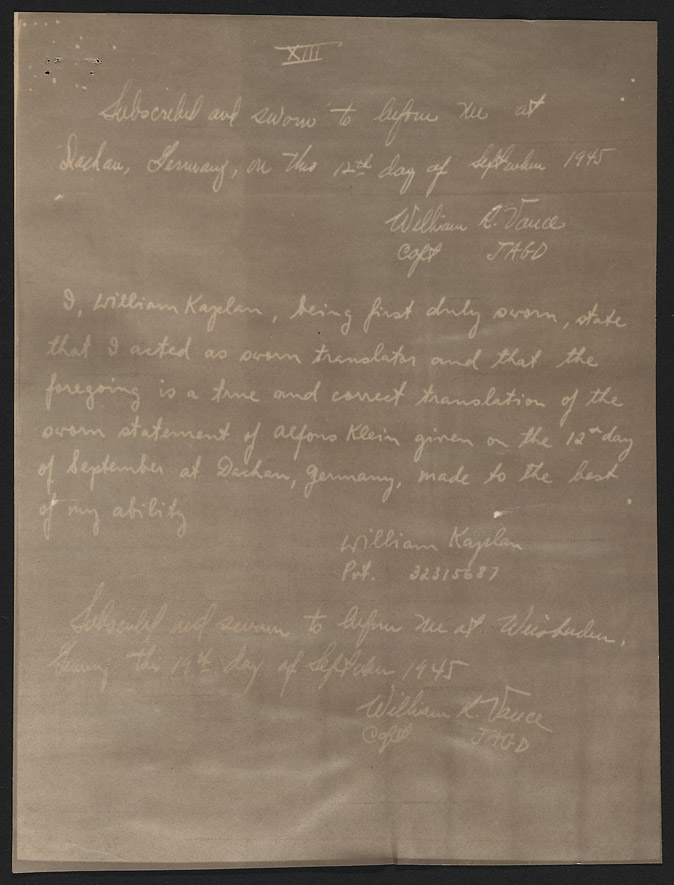 XIII
Subscribed and sworn to before me at
Dachau, Germany, on this 12th day of September 1945
William R. Vance
Capt JAGD
I, William Kaplan, being first duly sworn, state
that I acted as sworn translator and that the
foregoing is a true and correct translation of the
sworn statement of Alfons Klein given on the 12th day
of September at Dachau, Germany, made to the best
of my ability
William Kaplan
Pvt. 32315687
Subscribed and sworn to before me at Weisbaden,
Germany this 19th day of September 1945
William R. Vance
Capt JAGD